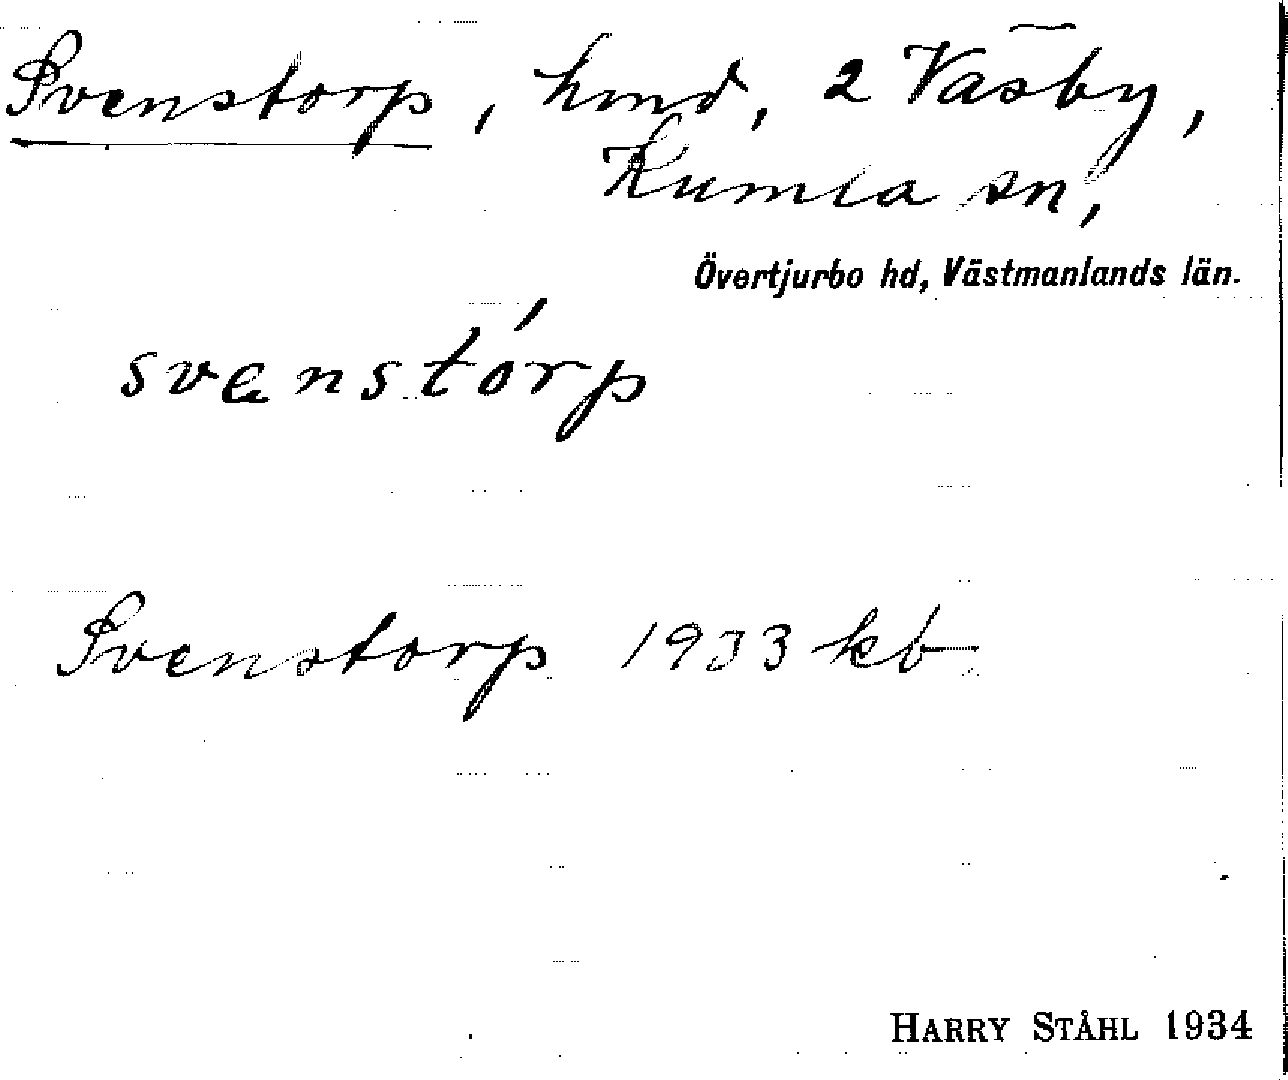 Svenstorp, hmd, 2 Väsby,
Kumla sn,
Övertjurbo hd, Västmanlands län.
svenstórp
Svenstorp 1933 kb
HARRY STÅHL 1934